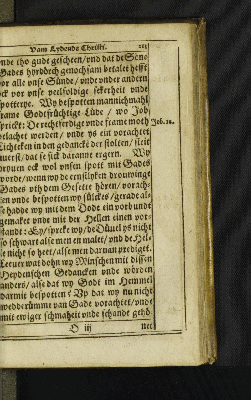 Vam Lydende Christi. 213
vnde tho gude gescheen/vnd dat de Söne
Gades hyrdorch genochsam betalet hefft
vor alle vnse Sünde/vnde vnder andern
ock vor vnse veelfoldige sekerheit vnde
spotterye. Wy bespotten mannichmahl
frame Godtfrüchtige Lüde / wo Job
sprickt: De rechtferdige vnde frame moth Job. 12.
belachet werden / vnde ys ein vorachtet
Lichtken in den gedancke der stolten/steit
auerst/dat se sick daranne ergern. Wy
dryuen ock wol vnsen spott mit Gades
worde/wenn wy de ernstlyken drouwinge
Gades vth dem Gesette hören / vorach-
ten vnde bespotten wy sückes/gerade als
se hadde wy mit dem Dode ein vorbundt
gemaket vnde mit der Hellen einen vor-
standt: Ey/sprecke wy/de Düuel ys nicht
so schwart alse men en malet/vnd de Hel-
le nicht so heet/alse men daruan prediget.
Leeuer wat dohn wy Minschen mit dissen
Heydenschen Gedancken vnde wörden
anders/alse dat wy Godt im Hemmel
darmit bespotten? Vp dat wy nu nicht
wedderümme van Gade vorachtet/vnde
mit ewiger schmaheit vnde schande gehö-
O iij net